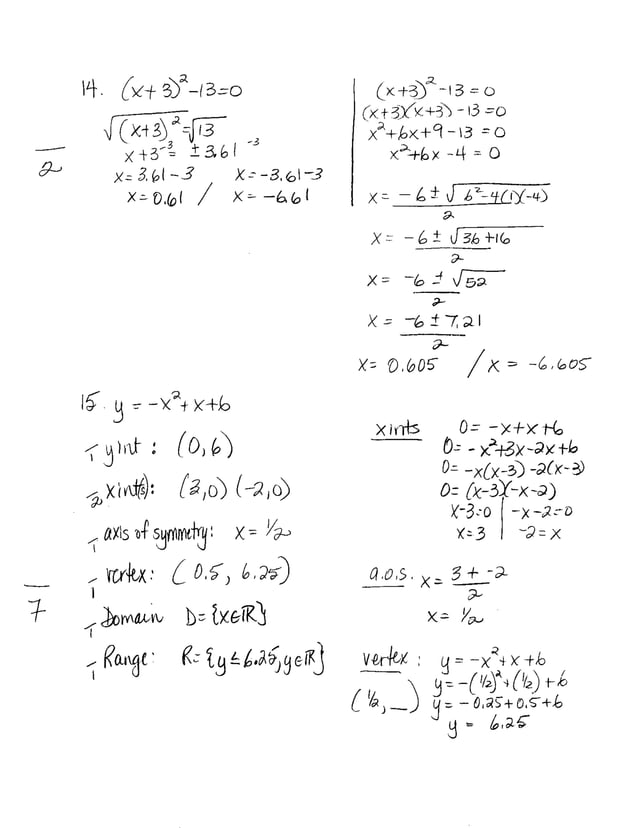 14. (x+3)²-13=0
√(x+3)² = √13
x+3⁻³ = ±3.61 ⁻³
x= 3.61-3   x=-3.61-3
x=0.61 / x= -6.61
2
(x+3)²-13 = 0
(x+3)(x+3)-13=0
x²+6x+9-13 = 0
x²+6x-4 = 0
x= -6 ± √6²-4(1)(-4)
2
x= -6 ± √36+16
2
x= -6 ± √52
2
x = -6 ± 7.21
2
x= 0.605 / x = -6.605
15. y = -x²+x+6
1 y int : (0,6)
2 xint(s): (3,0) (-2,0)
1 axis of symmetry: x= 1/2
1 vertex: (0.5, 6.25)
7
1 Domain D={x∈ℝ}
1 Range: R={y≤6.25, y∈ℝ}
xints 0= -x+x+6
0= -x²+3x-2x+6
0= -x(x-3)-2(x-3)
0= (x-3)(-x-2)
x-3=0 | -x-2=0
x=3 | -2=x
a.o.s. x= 3 + -2
2
x= 1/2
vertex : y= -x²+x+6
(1/2, __) y= -(1/2)²+(1/2)+6
y= -0.25+0.5+6
y = 6.25